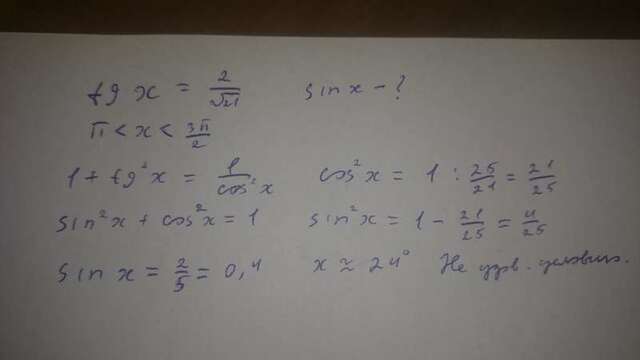 tg x = 2/√21 sin x - ?
π < x < 3π/2
1 + tg²x = 1/cos²x cos²x = 1 : 25/21 = 21/25
sin²x + cos²x = 1 sin²x = 1 - 21/25 = 4/25
sin x = 2/5 = 0,4 x ≈ 24° Не удов. условию.